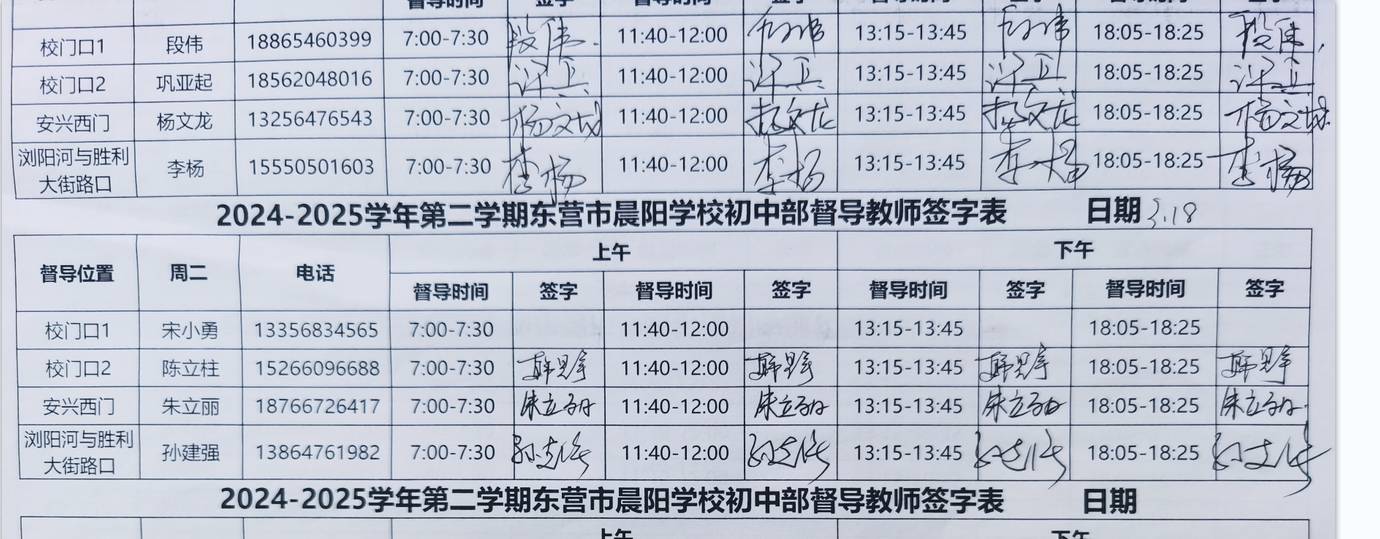 督导时间 签字 督导时间 签字 督导时间 签字 督导时间 签字
校门口1 段伟 18865460399 7:00-7:30 段伟 11:40-12:00 段伟 13:15-13:45 段伟 18:05-18:25 段伟
校门口2 巩亚起 18562048016 7:00-7:30 11:40-12:00 13:15-13:45 18:05-18:25
安兴西门 杨文龙 13256476543 7:00-7:30 杨文龙 11:40-12:00 杨文龙 13:15-13:45 杨文龙 18:05-18:25 杨文龙
浏阳河与胜利
大街路口 李杨 15550501603 7:00-7:30 李杨 11:40-12:00 李杨 13:15-13:45 李杨 18:05-18:25 李杨
2024-2025学年第二学期东营市晨阳学校初中部督导教师签字表 日期 3.18
督导位置 周二 电话 上午 下午
督导时间 签字 督导时间 签字 督导时间 签字 督导时间 签字
校门口1 宋小勇 13356834565 7:00-7:30 11:40-12:00 13:15-13:45 18:05-18:25
校门口2 陈立柱 15266096688 7:00-7:30 11:40-12:00 13:15-13:45 18:05-18:25
安兴西门 朱立丽 18766726417 7:00-7:30 朱立丽 11:40-12:00 朱立丽 13:15-13:45 朱立丽 18:05-18:25 朱立丽
浏阳河与胜利
大街路口 孙建强 13864761982 7:00-7:30 孙建强 11:40-12:00 孙建强 13:15-13:45 孙建强 18:05-18:25 孙建强
2024-2025学年第二学期东营市晨阳学校初中部督导教师签字表 日期
上午 下午